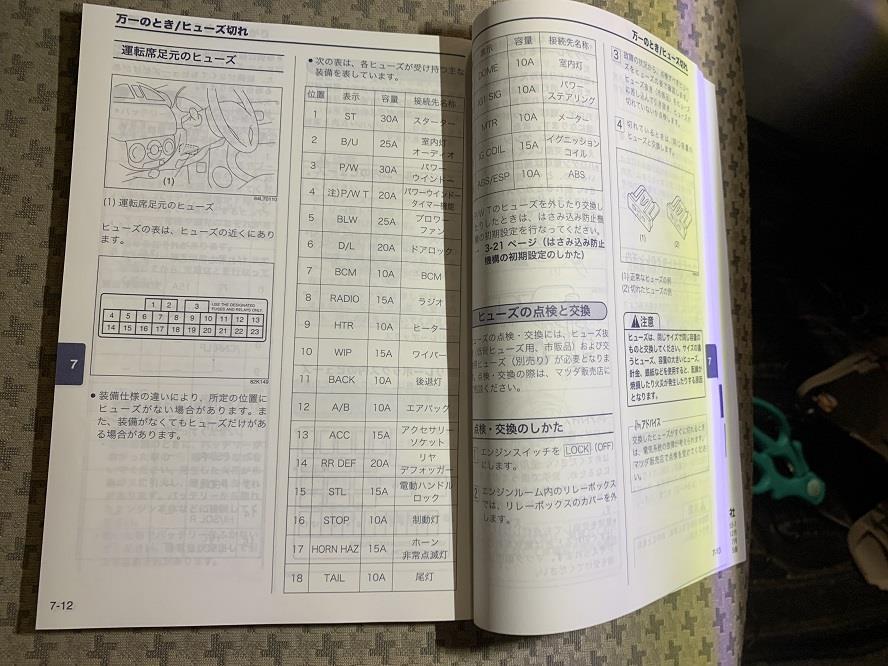 万一のとき/ヒューズ切れ
運転席足元のヒューズ
(1)
84LT0110
(1) 運転席足元のヒューズ
ヒューズの表は、ヒューズの近くにあり
ます。
1 2 3 USE THE DESIGNATED
FUSES AND RELAYS ONLY.
4 5 6 7 8 9 10 11 12 13
14 15 16 17 18 19 20 21 22 23
82K149
● 装備仕様の違いにより、所定の位置に
ヒューズがない場合があります。ま
た、装備がなくてもヒューズだけがあ
る場合があります。
7
7-12
● 次の表は、各ヒューズが受け持つ主な
装備を表しています。
位置 表示 容量 接続先名称
1 ST 30A スターター
2 B/U 25A 室内灯
オーディオ
3 P/W 30A パワー
ウインドー
4 注)P/W T 20A パワーウインドー
タイマー機能
5 BLW 25A ブロワー
ファン
6 D/L 20A ドアロック
7 BCM 10A BCM
8 RADIO 15A ラジオ
9 HTR 10A ヒーター
10 WIP 15A ワイパー
11 BACK 10A 後退灯
12 A/B 10A エアバッグ
13 ACC 15A アクセサリー
ソケット
14 RR DEF 20A リヤ
デフォッガー
15 STL 15A 電動ハンドル
ロック
16 STOP 10A 制動灯
17 HORN HAZ 15A ホーン
非常点滅灯
18 TAIL 10A 尾灯
万一のとき/ヒューズ切れ
表示 容量 接続先名称
DOME 10A 室内灯
IG1 SIG 10A パワー
ステアリング
MTR 10A メーター
IG COIL 15A イグニッション
コイル
ABS/ESP 10A ABS
W Tのヒューズを外したり交換し
たりしたときは、はさみ込み防止機
の初期設定を行なってください。
3-21 ページ(はさみ込み防止
機構の初期設定のしかた)
ヒューズの点検と交換
ューズの点検・交換には、ヒューズ抜
ヒューズ用、市販品)および交
ヒューズ(別売り)が必要となりま
点検・交換の際は、マツダ販売店に
ください。
点検・交換のしかた
1 エンジンスイッチを LOCK (OFF)
にします。
2 エンジンルーム内のリレーボックス
では、リレーボックスのカバーを外
します。
3 故障の状況から、点検すべきヒュー
4 切れているときは、同じ容量の
ヒューズと交換します。
(1)
(2)
(1) 正常なヒューズの例
(2) 切れたヒューズの例
注意
ヒューズは、同じサイズで同じ容量の
ものと交換してください。サイズの違
うヒューズ、容量の大きいヒューズ、
針金、銀紙などを使用すると、配線が
焼損したり火災が発生したりする原因
となります。
アドバイス
交換したヒューズがすぐに切れるとき
は、電気系統の故障が考えられます。
マツダ販売店で点検を受けてくださ
い。
7
7-13
社